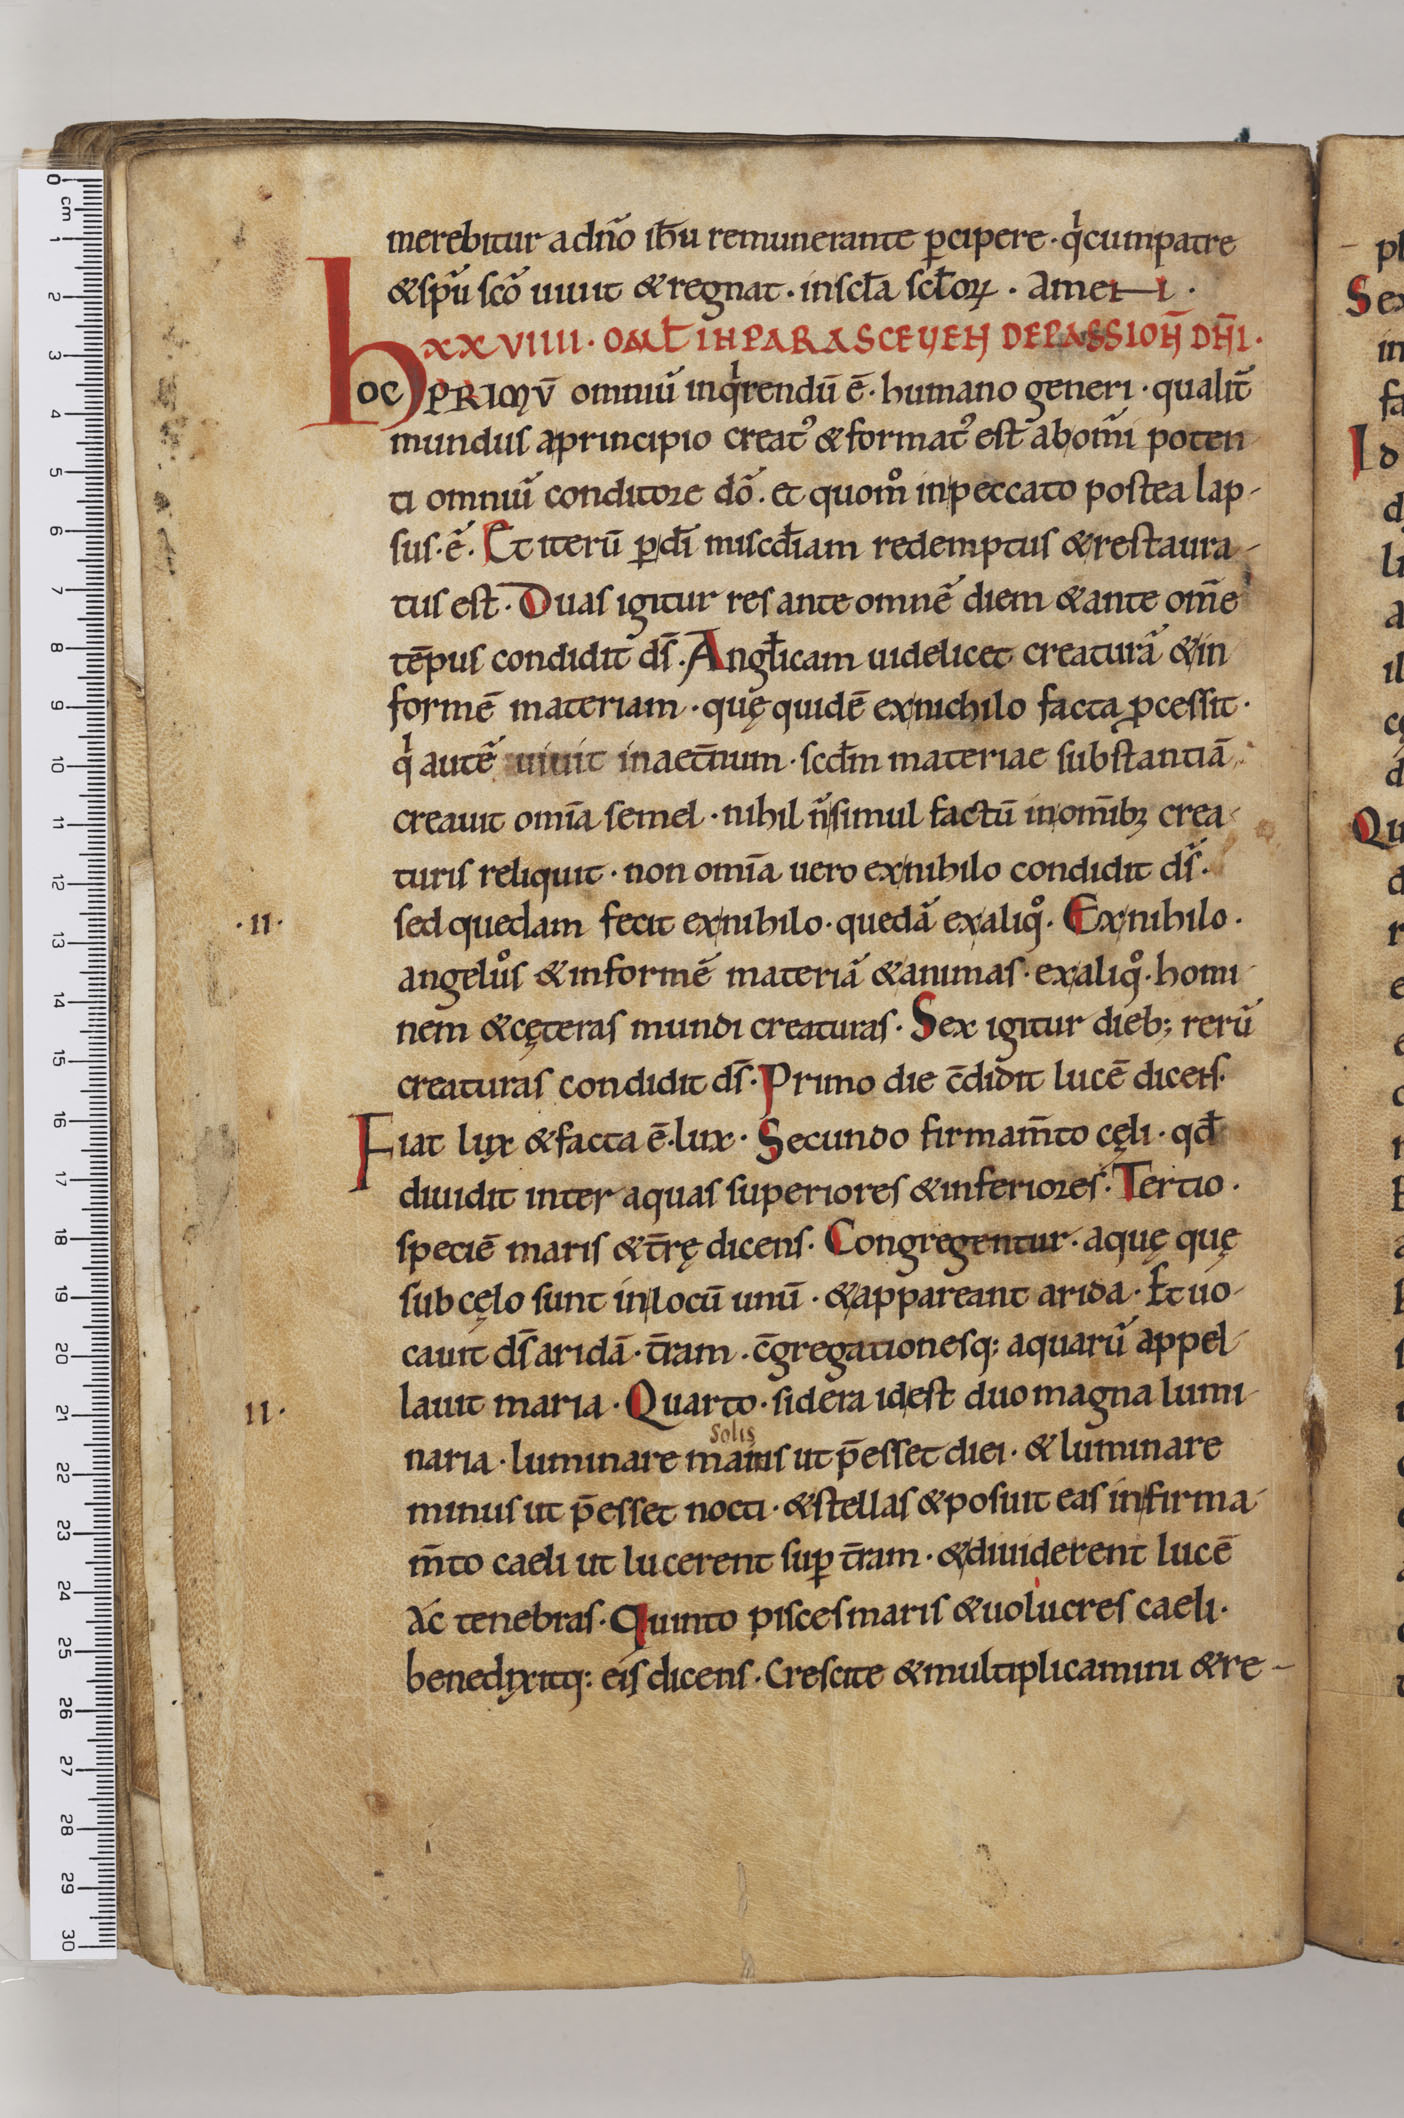 merebitur adño ihu remunerante ꝑcipere · qͥ cumpatre
&spũ scõ uiuit & regnat · inscła scłoꝝ · Amen ·
XXVIIII · OMŁ IN PARASCEUEN DE PASSION̄ DN̄I ·
hoc PRIMV̄ omniũ inqͥrendū ē · humano generi · qualit̄
mundus aprincipio creatꝰ & formatꝰ est abom̄i poten
ti omniũ conditore dõ · et quom̊ inpeccato postea lap-
sus · ē · Et iterū ꝑ dī miscđiam redemptus & restaura-
tus est · Duas igitur res ante omnē diem & ante om̄e
tēpus condidit ds̄ · Angłicam uidelicet creaturã & in
formē materiam · quę quidē exnichilo facta ꝓcessit ·
qͥ autē uiuit inaet̄num · scđm materiae substantiã ·
creauit omīa semel · nihil ñ simul factū inom̄ibꝫ crea-
turis reliquit · non omīa uero exnihilo condidit ds̄ ·
· II · sed quedam fecit exnihilo · quedã exaliq̊ · Exnihilo ·
angelůs & informē materiã & animas · exaliq̊ · homi-
nem & cęteras mundi creaturas · Sex igitur dieb; rerũ
creaturas condidit ds̄ · Primo die c̄didit lucē dicens ·
Fiat lux & facta ē · lux · Secundo firmam̄to cęli · qđ
diuidit inter aquas superiores & inferiores · Tertio ·
speciē maris & t̄rę dicens · Congregentur · aquę quę
sub cęlo sunt inlocū unū · & appareant arida · Et uo-
cauit ds̄ aridã · t̄ram · c̄gregationesq; aquarũ appel-
II · lauit maria · Quarto · sidera idest duo magna lumi-
solis
naria · luminare maius ut p̄esset diei · & luminare
minus ut p̄esset nocti · & stellas & posuit eas infirma-
m̄to caeli ut lucerent suꝑ t̄ram · & diuiderent lucē
Ac tenebras · Quinto pisces maris & uolucres caeli ·
benedixitq; eis dicens · Crescite & multiplicamini & re-
Sex
in
fa
Id
Qu